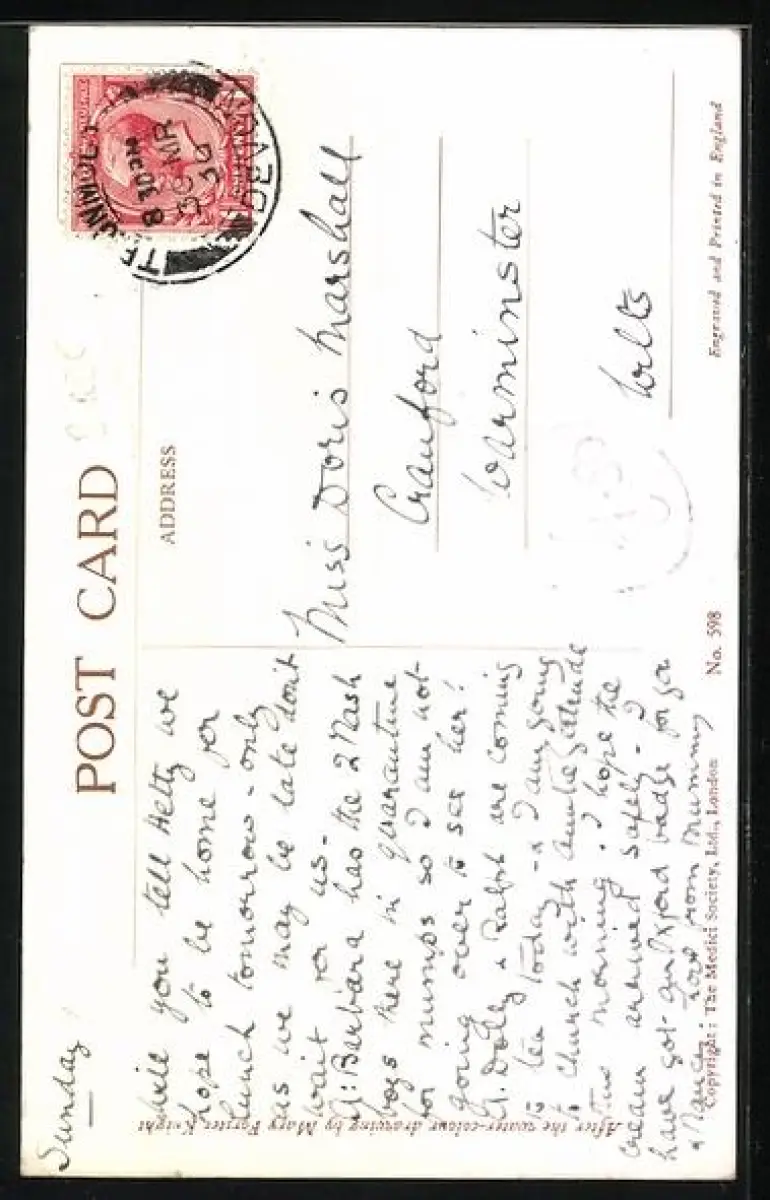 POST CARD
ADDRESS
TUNBRIDGE
8 30 PM
30 MR
30
Miss Doris Marshall
Cranford
Warminster
Wilts
Sunday
Will you tell Hetty we
hope to be home for
lunch tomorrow - only
as we may be late don't
wait for us.
A: Barbara has the 2 Nash
boys there in quarantine
for mumps so I am not
going over to see her!
U. Dolly & Ralph are coming
to tea today - & I am going
to Church with Auntie Gertrude
this morning. I hope the
cream arrived safely - I
have got Guildford badge for you
& Nancy. love from Mummy
After the water-colour drawing by Mary Forster Knight
Copyright: The Medici Society, Ltd., London
No. 598
Engraved and Printed in England